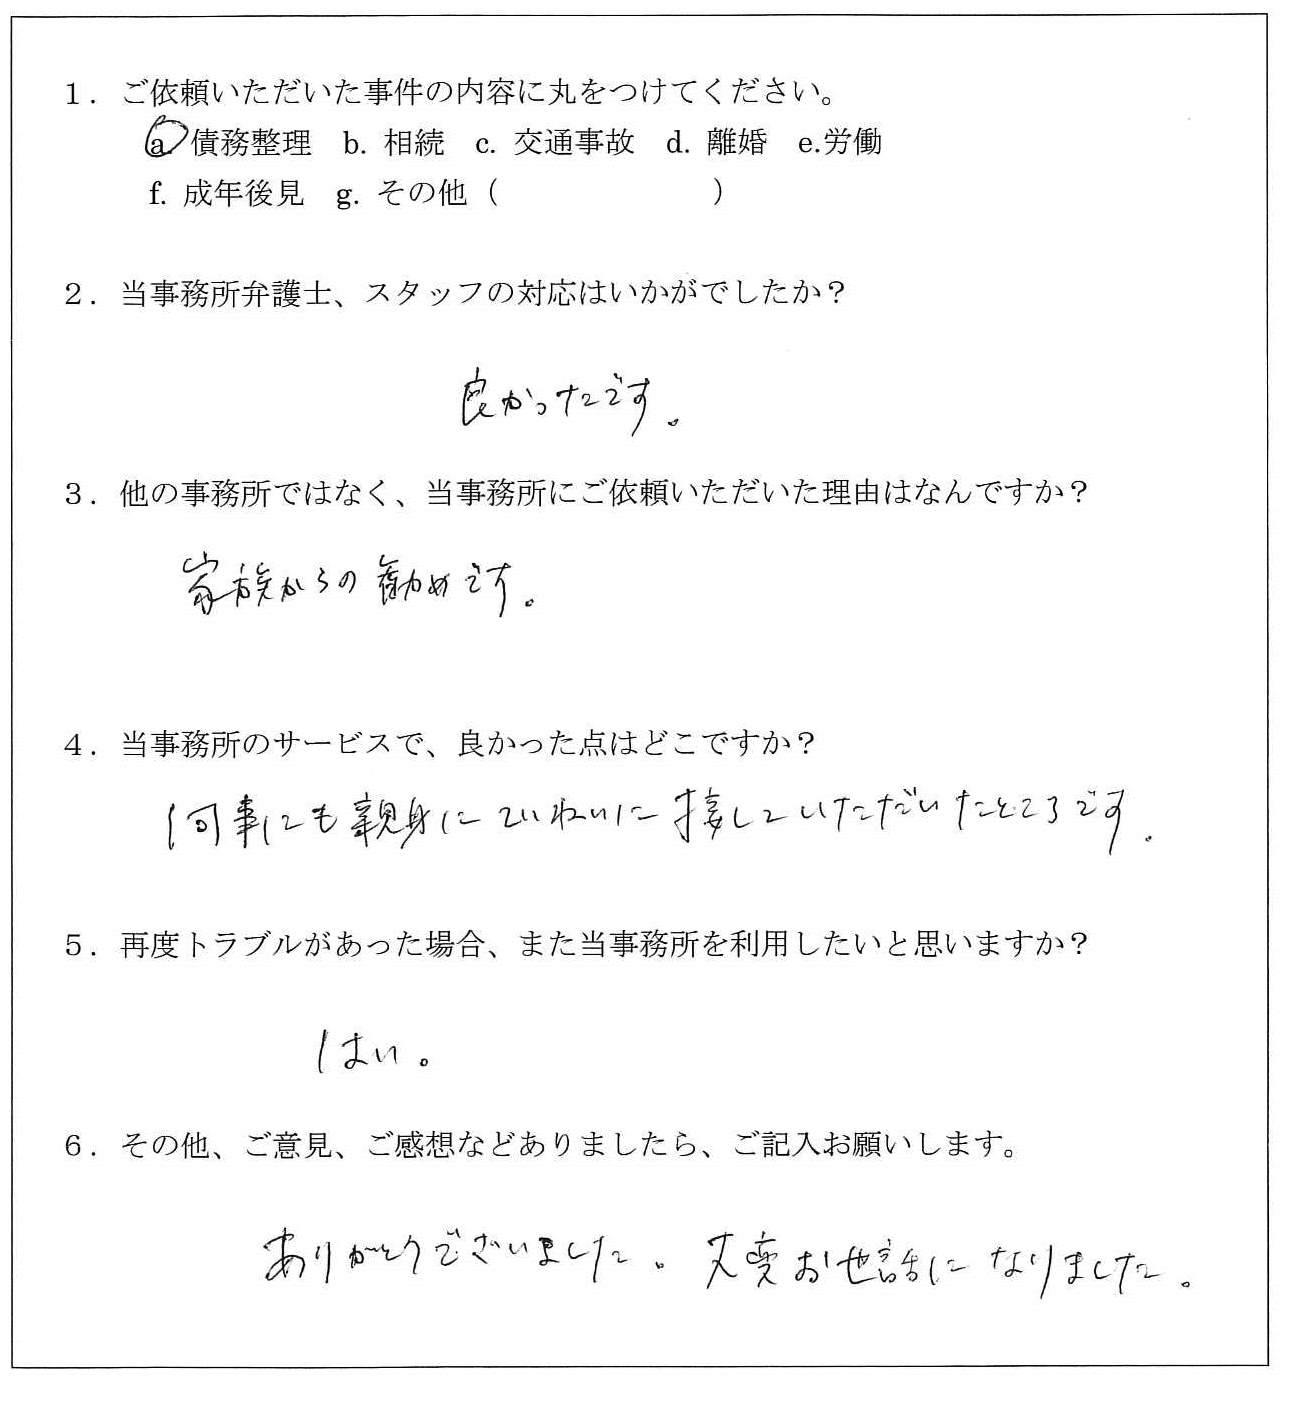 １．ご依頼いただいた事件の内容に丸をつけてください。
a. 債務整理　b. 相続　c. 交通事故　d. 離婚　e.労働
f. 成年後見　g. その他（　　　　　　　）
２．当事務所弁護士、スタッフの対応はいかがでしたか？
良かったです。
３．他の事務所ではなく、当事務所にご依頼いただいた理由はなんですか？
家族からの勧めです。
４．当事務所のサービスで、良かった点はどこですか？
何事にも親身にていねいに接していただいたところです。
５．再度トラブルがあった場合、また当事務所を利用したいと思いますか？
はい。
６．その他、ご意見、ご感想などありましたら、ご記入お願いします。
ありがとうございました。大変お世話になりました。